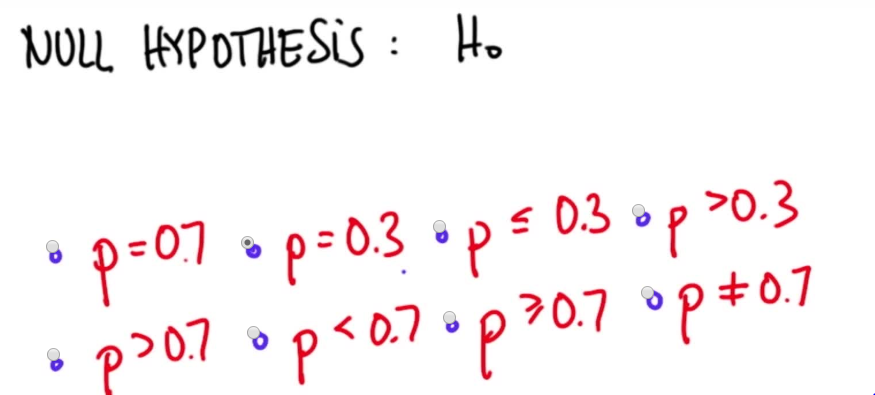 NULL HYPOTHESIS : H₀
p = 0.7 p = 0.3 p ≤ 0.3 p > 0.3
p > 0.7 p < 0.7 p ≥ 0.7 p ≠ 0.7